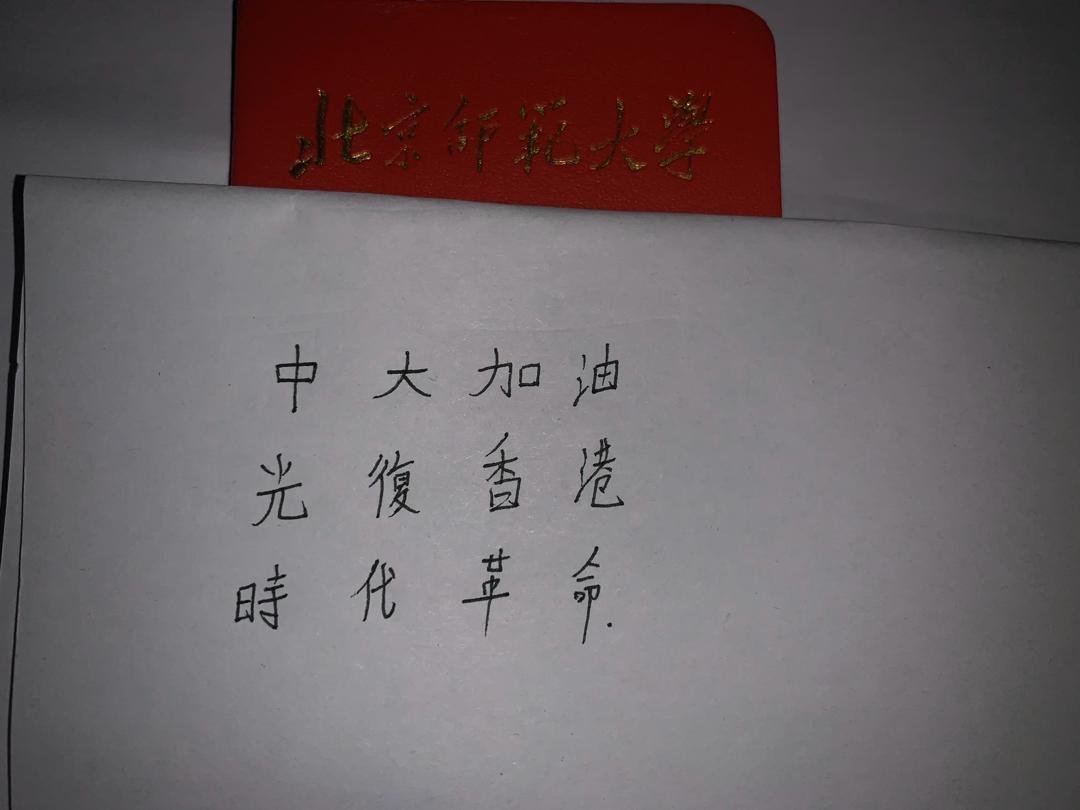 北京师範大學
中大加油
光復香港
時代革命.